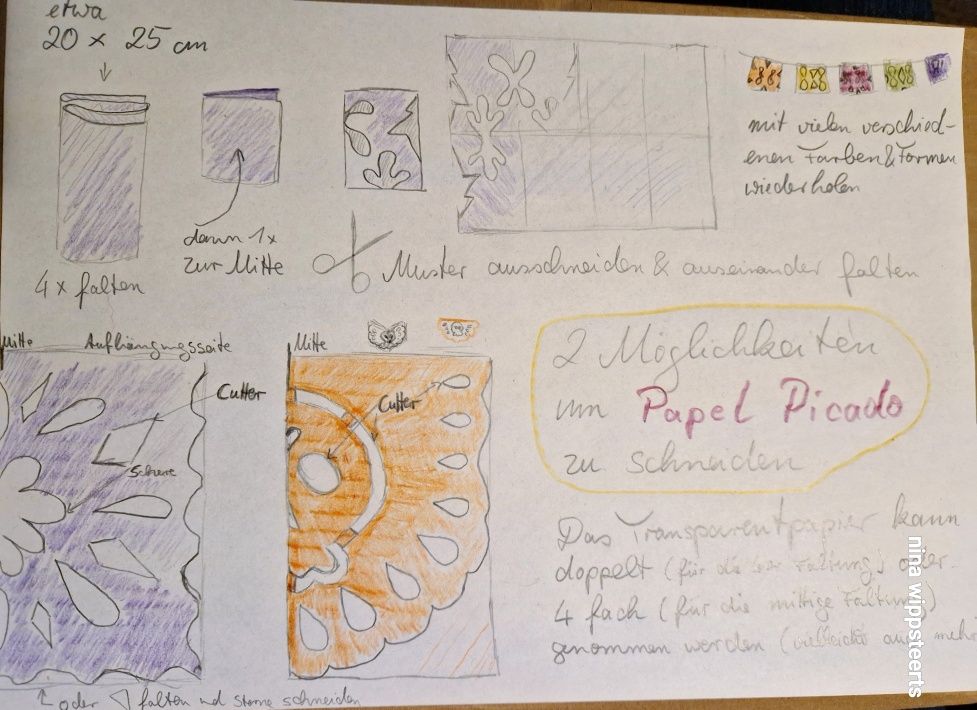 etwa
20 x 25 cm
4x falten
dann 1x
zur Mitte
Muster ausschneiden & auseinander falten
mit vielen verschied-
enen Farben & Formen
wiederholen
Mitte
Aufhängungsseite
Cutter
Schere
oder falten und Sterne schneiden
Mitte
Cutter
2 Möglichkeiten
um Papel Picado
zu schneiden
Das Transparentpapier kann
doppelt (für die Faltung) oder
4 fach (für die mittige Faltung)
genommen werden (vielleicht auch mehr
nina wippsteerts